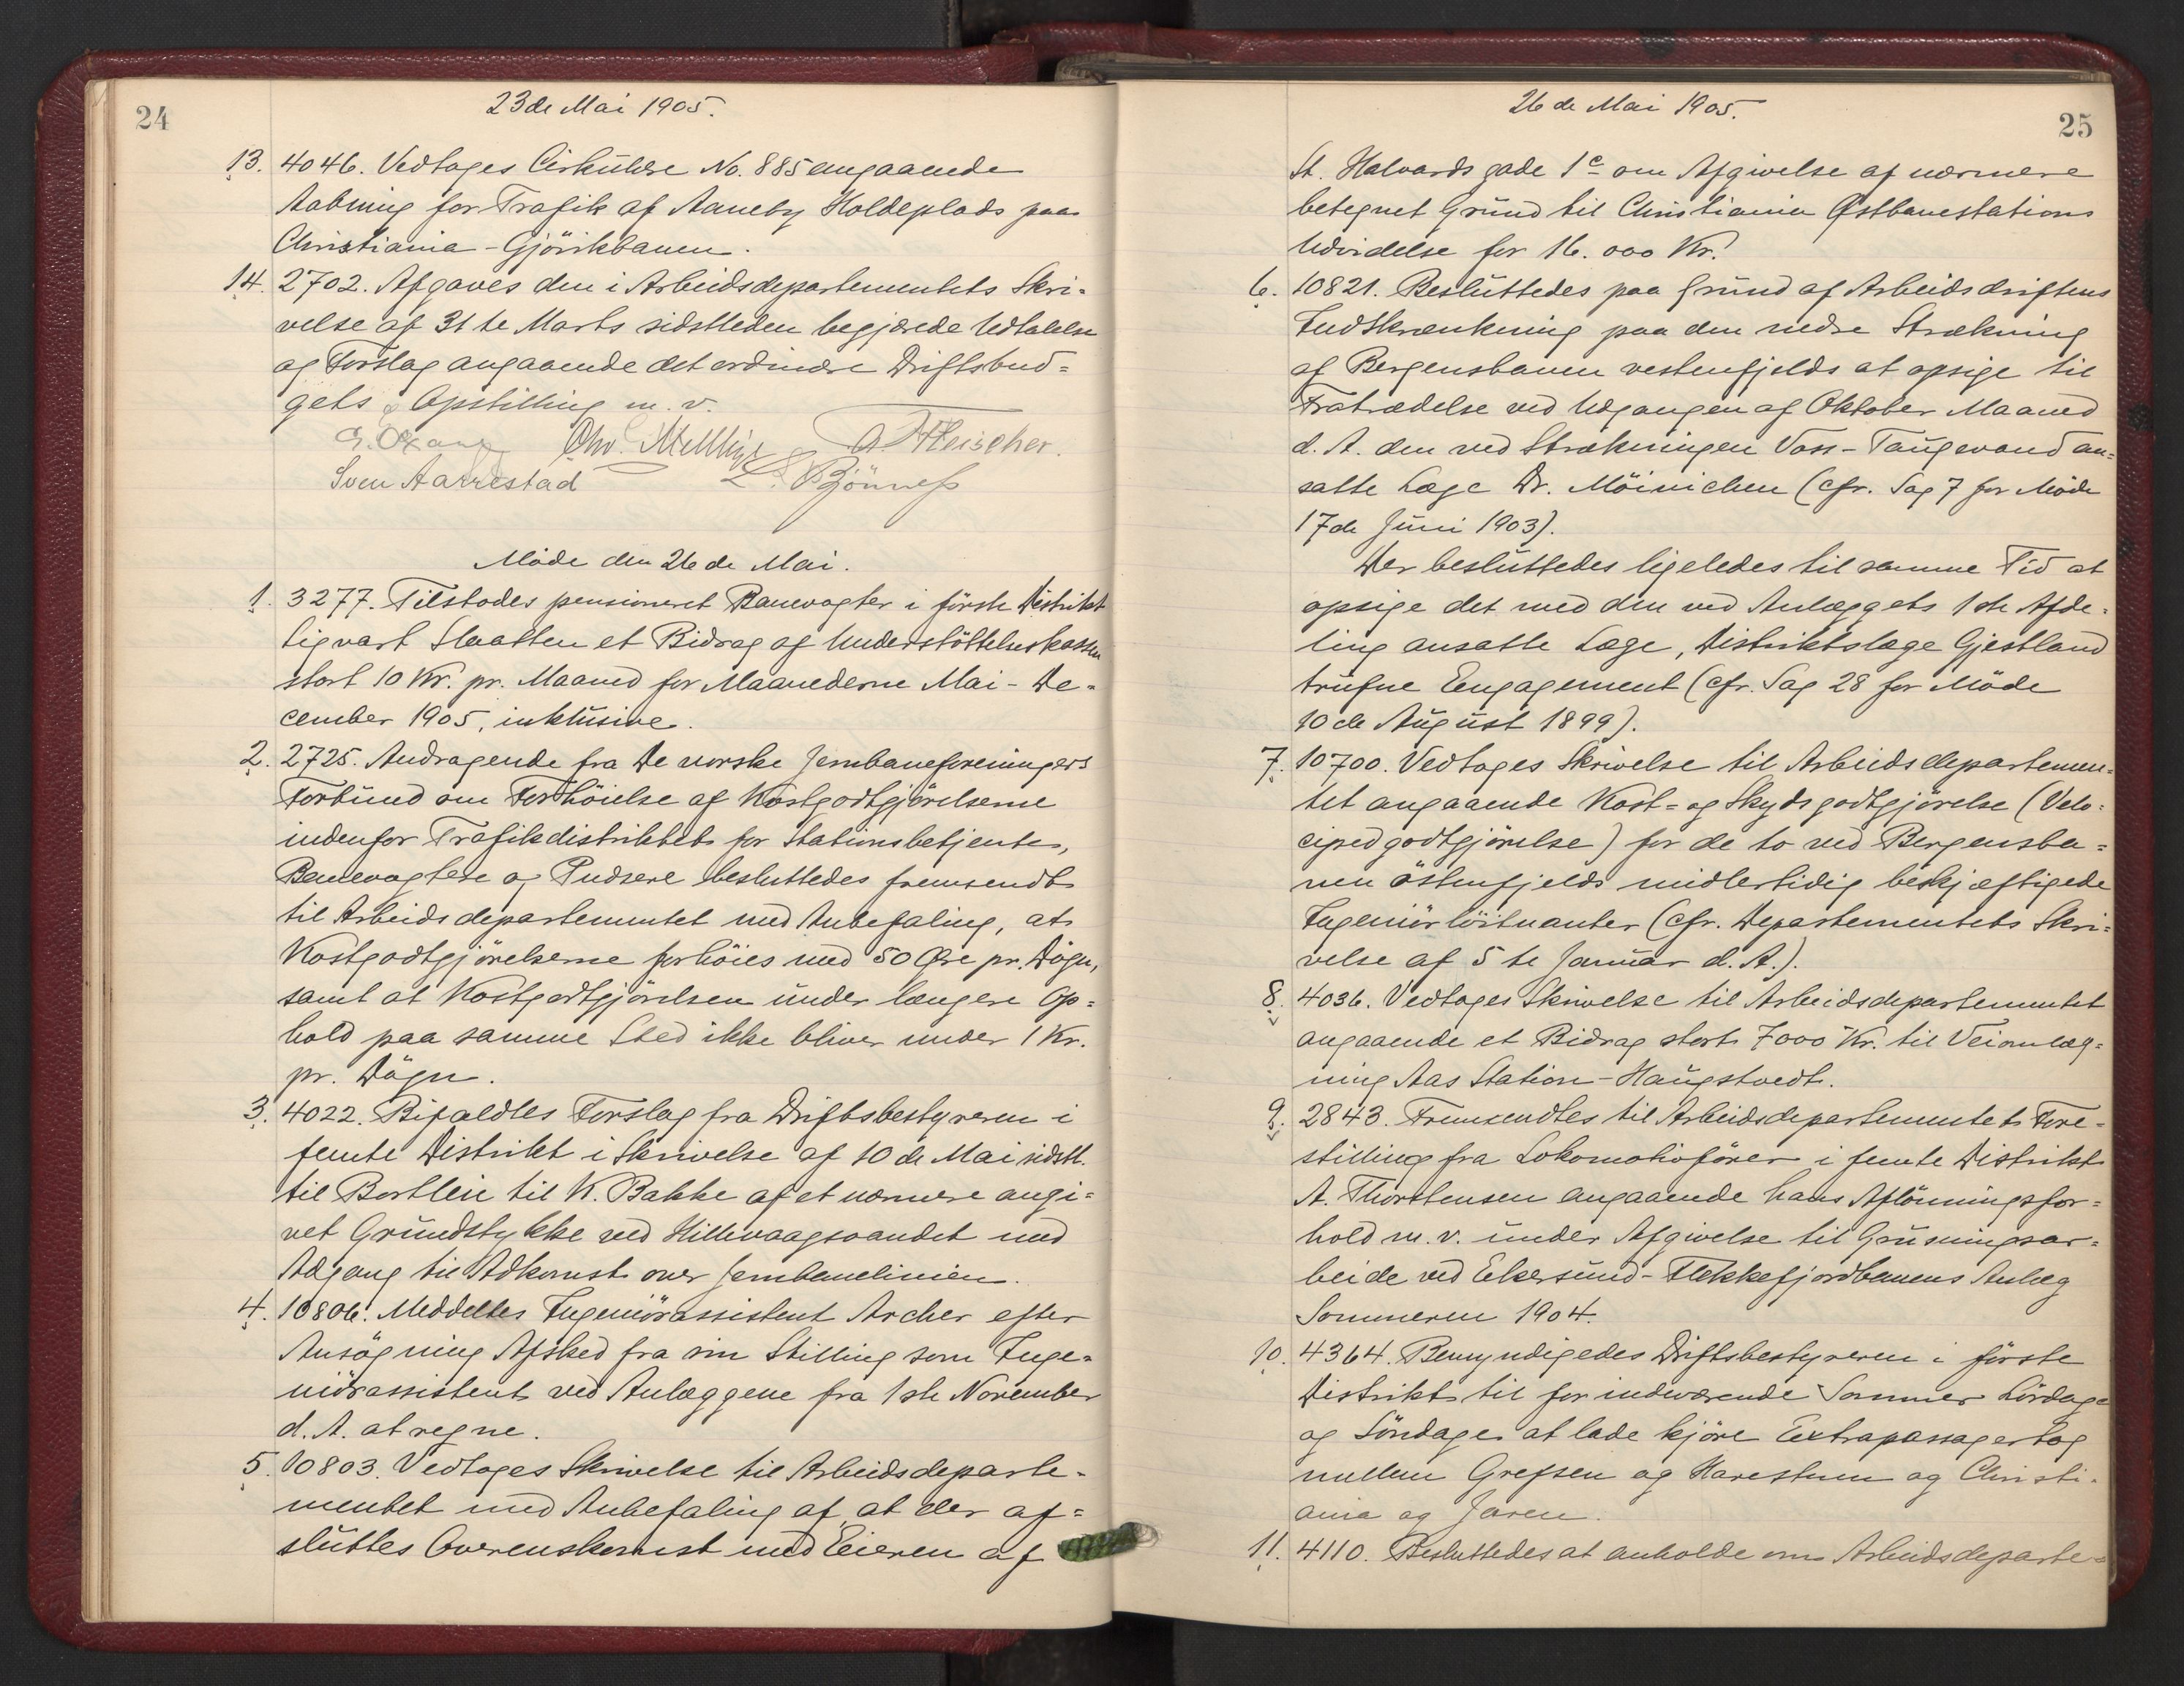 24
23de Mai 1905.
13. 4046. Vedtoges Cirkulære No. 885 angaaende
Aabning for Trafik af Aaneby Holdeplads paa
Christiania-Gjövikbanen.
14. 2702. Afgaves den i Arbeidsdepartementets Skri=
velse af 31te Marts sidstleden begjærede Udtalelse
og Forslag angaaende det ordinære Driftsbud=
gets Opstilling m. v.
Chr. Melling A. Fleischer.
Sven Aarrestad Bjönness
Möde den 26de Mai.
1. 3277. Tilstodes pensioneret Banevogter i förste Distrikt
Sigvart Slaatten et Bidrag af Understöttelseskassen
stort 10 Kr. pr. Maaned for Maanederne Mai-De=
cember 1905, inklusive.
2. 2725. Andragende fra De norske Jernbaneforeningers
Forbund om Forhöielse af Kostgodtgjörelserne
indenfor Trafikdistriktet for Stationsbetjente,
Banevogtere og Pudsere besluttedes fremsendt
til Arbeidsdepartementet med Anbefaling, at
Kostgodtgjörelserne forhöies med 50 Øre pr. Dögn,
samt at Kostgodtgjörelsen under længere Op=
hold paa samme Sted ikke bliver under 1 Kr.
pr. Dögn.
3. 4022. Bifaldtes Forslag fra Driftsbestyreren i
femte Distrikt i Skrivelse af 10de Mai sidstl.
til Bortleie til K. Bakke af et nærmere angi=
vet Grundstykke ved Hillevaagsvandet med
Adgang til Adkomst over Jernbanelinien.
4. 10806. Meddeltes Ingeniörassistent Archer efter
Ansögning Afsked fra sin Stilling som Inge=
niörassistent ved Anlæggene fra 1ste November
d. A. at regne.
5. 10803. Vedtoges Skrivelse til Arbeidsdeparte=
mentet med Anbefaling af, at der af=
sluttes Overenskomst med Eieren af
26de Mai 1905.
25
St. Halvards gade 1c om Afgivelse af nærmere
betegnet Grund til Christiania Østbanestations
Udvidelse for 16.000 Kr.
6. 10821. Besluttedes paa Grund af Arbeidsdriftens
Indskrænkning paa den nedre Strækning
af Bergensbanen vestenfjelds at opsige til
Fratrædelse ved Udgangen af Oktober Maaned
d. A. den ved Strækningen Voss-Taugevand an=
satte Læge Dr. Möinichen (cfr. Sag 7 for Möde
17de Juni 1903).
Der besluttedes ligeledes til samme Tid at
opsige det med den ved Anlæggets 1ste Afde=
ling ansatte Læge, Distriktslæge Gjestland
trufne Engagement (cfr. Sag 28 for Möde
10de August 1899).
7. 10700. Vedtoges Skrivelse til Arbeidsdepartemen=
tet angaaende Kost= og Skydsgodtgjörelse (Velo=
cipedgodtgjörelse) for de to ved Bergensba=
nen östenfjelds midlertidig beskjæftigede
Ingeniörlöitnanter (cfr. Departementets Skri=
velse af 5te Januar d. A.).
8. 4036. Vedtoges Skrivelse til Arbeidsdepartementet
angaaende et Bidrag stort 7000 Kr. til Veiomlæg=
ning Aas Station-Haugstvedt.
9. 2843. Fremsendtes til Arbeidsdepartementet Fore=
stilling fra Lokomotivförer i femte Distrikt
A. Thorstensen angaaende hans Aflönningsfor=
hold m. v. under Afgivelse til Grusningsar=
beide ved Ekersund-Flekkefjordbanens Anlæg
Sommeren 1904.
10. 4364. Bemyndigedes Driftsbestyreren i förste
Distrikt til for indeværende Sommer Lördage
og Söndage at lade kjöre Extrapassagertog
mellem Grefsen og Harestuen og Christi=
ania og Jaren.
11. 4110. Besluttedes at anholde om Arbeidsdeparte=